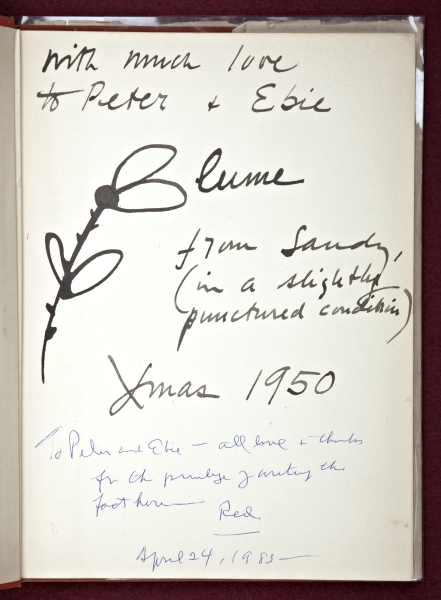 with much love
to Peter + Ebie
Blume
from Sandy,
(in a slightly
punctured condition)
Xmas 1950
To Peter and Ebie – all love + thanks
for the privilege of writing the
Red
April 24, 1983 —